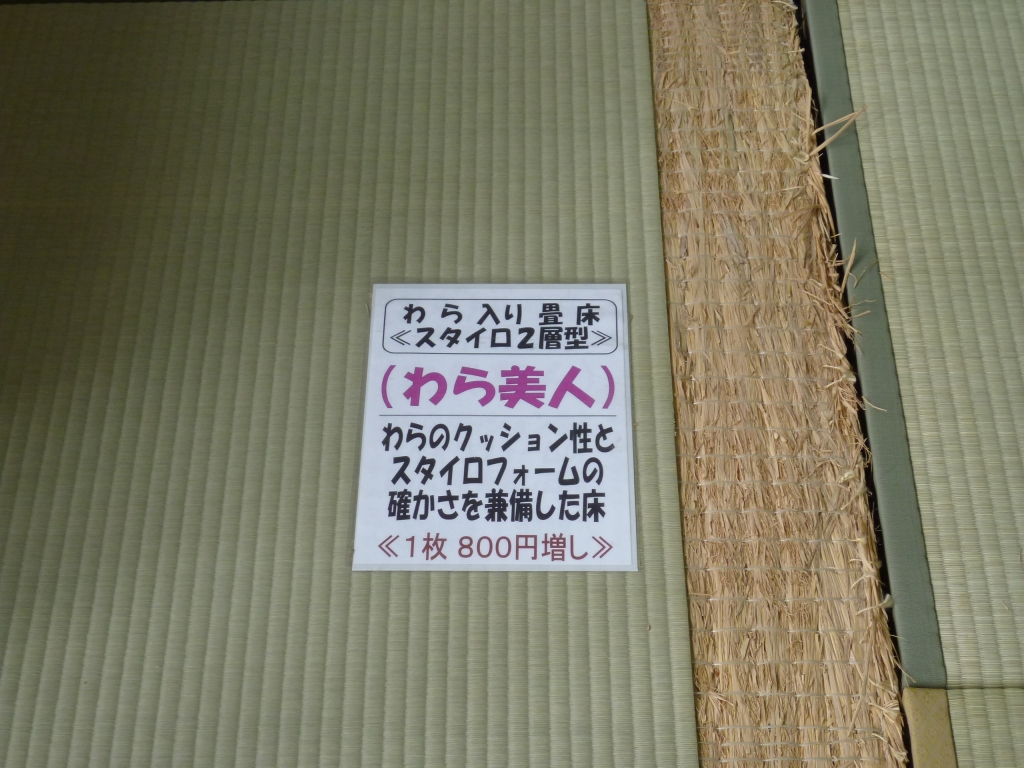 わら入り畳床
≪スタイロ2層型≫
(わら美人)
わらのクッション性と
スタイロフォームの
確かさを兼備した床
≪1枚 800円増し≫